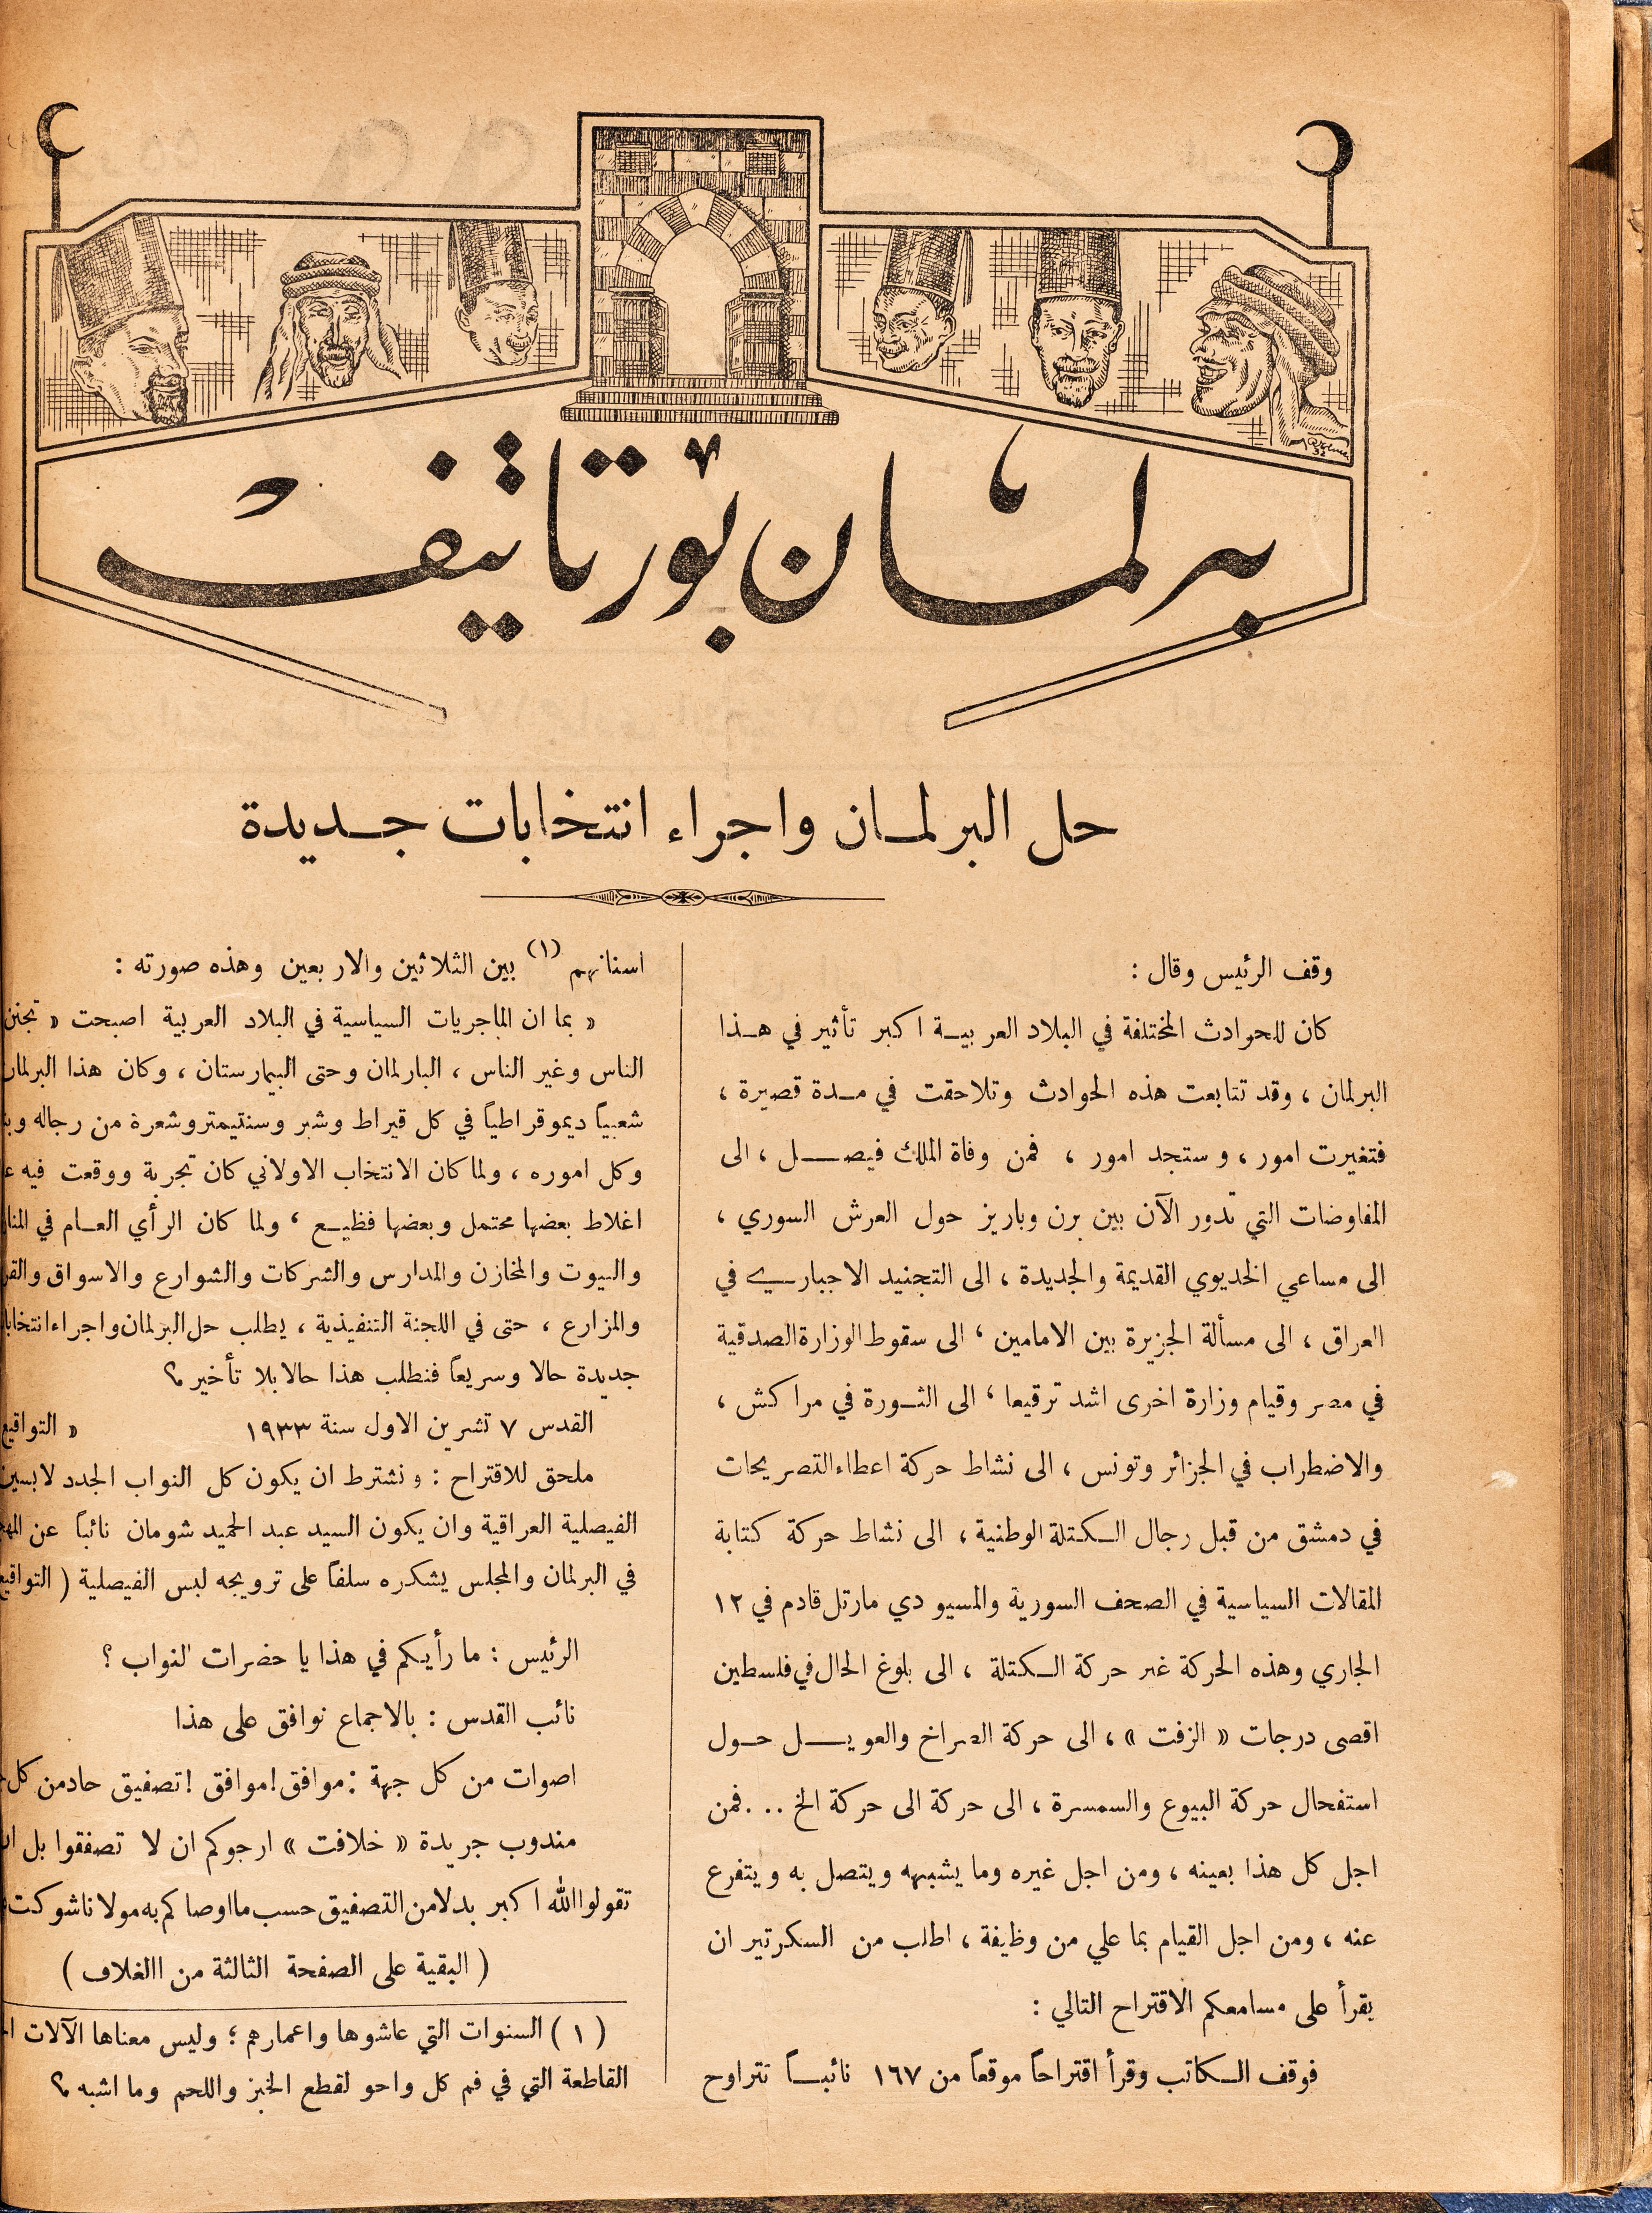 برلمان بورتاتيف
حل البرلمان واجراء انتخابات جديدة
وقف الرئيس وقال :
كان للحوادث المختلفة في البلاد العربية اكبر تأثير في هذا
البرلمان ، وقد تتابعت هذه الحوادث وتلاحقت في مدة قصيرة ،
فتغيرت امور ، وستجد امور ، فمن وفاة الملك فيصل ، الى
المفاوضات التي تدور الآن بين برن وباريز حول العرش السوري ،
الى مساعي الخديوي القديمة والجديدة ، الى التجنيد الاجباري في
العراق ، الى مسألة الجزيرة بين الامامين ، الى سقوط الوزارة الصدقية
في مصر وقيام وزارة اخرى اشد ترقيعا ، الى الثورة في مراكش ،
والاضطراب في الجزائر وتونس ، الى نشاط حركة اعطاء التصريحات
في دمشق من قبل رجال الكتلة الوطنية ، الى نشاط حركة كتابة
المقالات السياسية في الصحف السورية والمسيو دي مارتل قادم في ١٢
الجاري وهذه الحركة غير حركة الكتلة ، الى بلوغ الحال في فلسطين
اقصى درجات « الزفت » ، الى حركة الصراخ والعويل حول
استفحال حركة البيوع والسمسرة ، الى حركة الى حركة الخ . . . فمن
اجل كل هذا بعينه ، ومن اجل غيره وما يشبهه ويتصل به ويتفرع
عنه ، ومن اجل القيام بما علي من وظيفة ، اطلب من السكرتير ان
يقرأ على مسامعكم الاقتراح التالي :
فوقف الكاتب وقرأ اقتراحاً موقعاً من ١٦٧ نائبـاً تتراوح
اسنانهم (١) بين الثلاثين والاربعين وهذه صورته :
« بما ان الماجريات السياسية في البلاد العربية اصبحت « تجنن
الناس وغير الناس ، البارلمان وحتى البيمارستان ، وكان هذا البرلمان
شعبياً ديموقراطياً في كل قيراط وشبر وسنتيمتر وشعرة من رجاله
وكل اموره ، ولما كان الانتخاب الاولاني كان تجربة ووقعت فيه
اغلاط بعضها محتمل وبعضها فظيع ، ولما كان الرأي العام في
والبيوت والمخازن والمدارس والشركات والشوارع والاسواق
والمزارع ، حتى في اللجنة التنفيذية ، يطلب حل البرلمان واجراء
جديدة حالا وسريعاً فنطلب هذا حالا بلا تأخير ؟
القدس ٧ تشرين الاول سنة ١٩٣٣ « التواقيع
ملحق للاقتراح : ونشترط ان يكون كل النواب الجدد لابسين
الفيصلية العراقية وان يكون السيد عبد الحميد شومان نائباً عن
في البرلمان والمجلس يشكره سلفاً على ترويجه لبس الفيصلية ( التواقيع
الرئيس : ما رأيكم في هذا يا حضرات النواب ؟
نائب القدس : بالاجماع نوافق على هذا
اصوات من كل جهة : موافق ! موافق ! تصفيق حاد من كل
مندوب جريدة « خلافت » ارجوكم ان لا تصفقوا بل
تقولوا الله اكبر بدلا من التصفيق حسب ما اوصاكم به مولانا شوكت
( البقية على الصفحة الثالثة من االغلاف )
( ١ ) السنوات التي عاشوها واعمارهم ؛ وليس معناها الآلات
القاطعة التي في فم كل واحو لقطع الخبز واللحم وما اشبه ؟